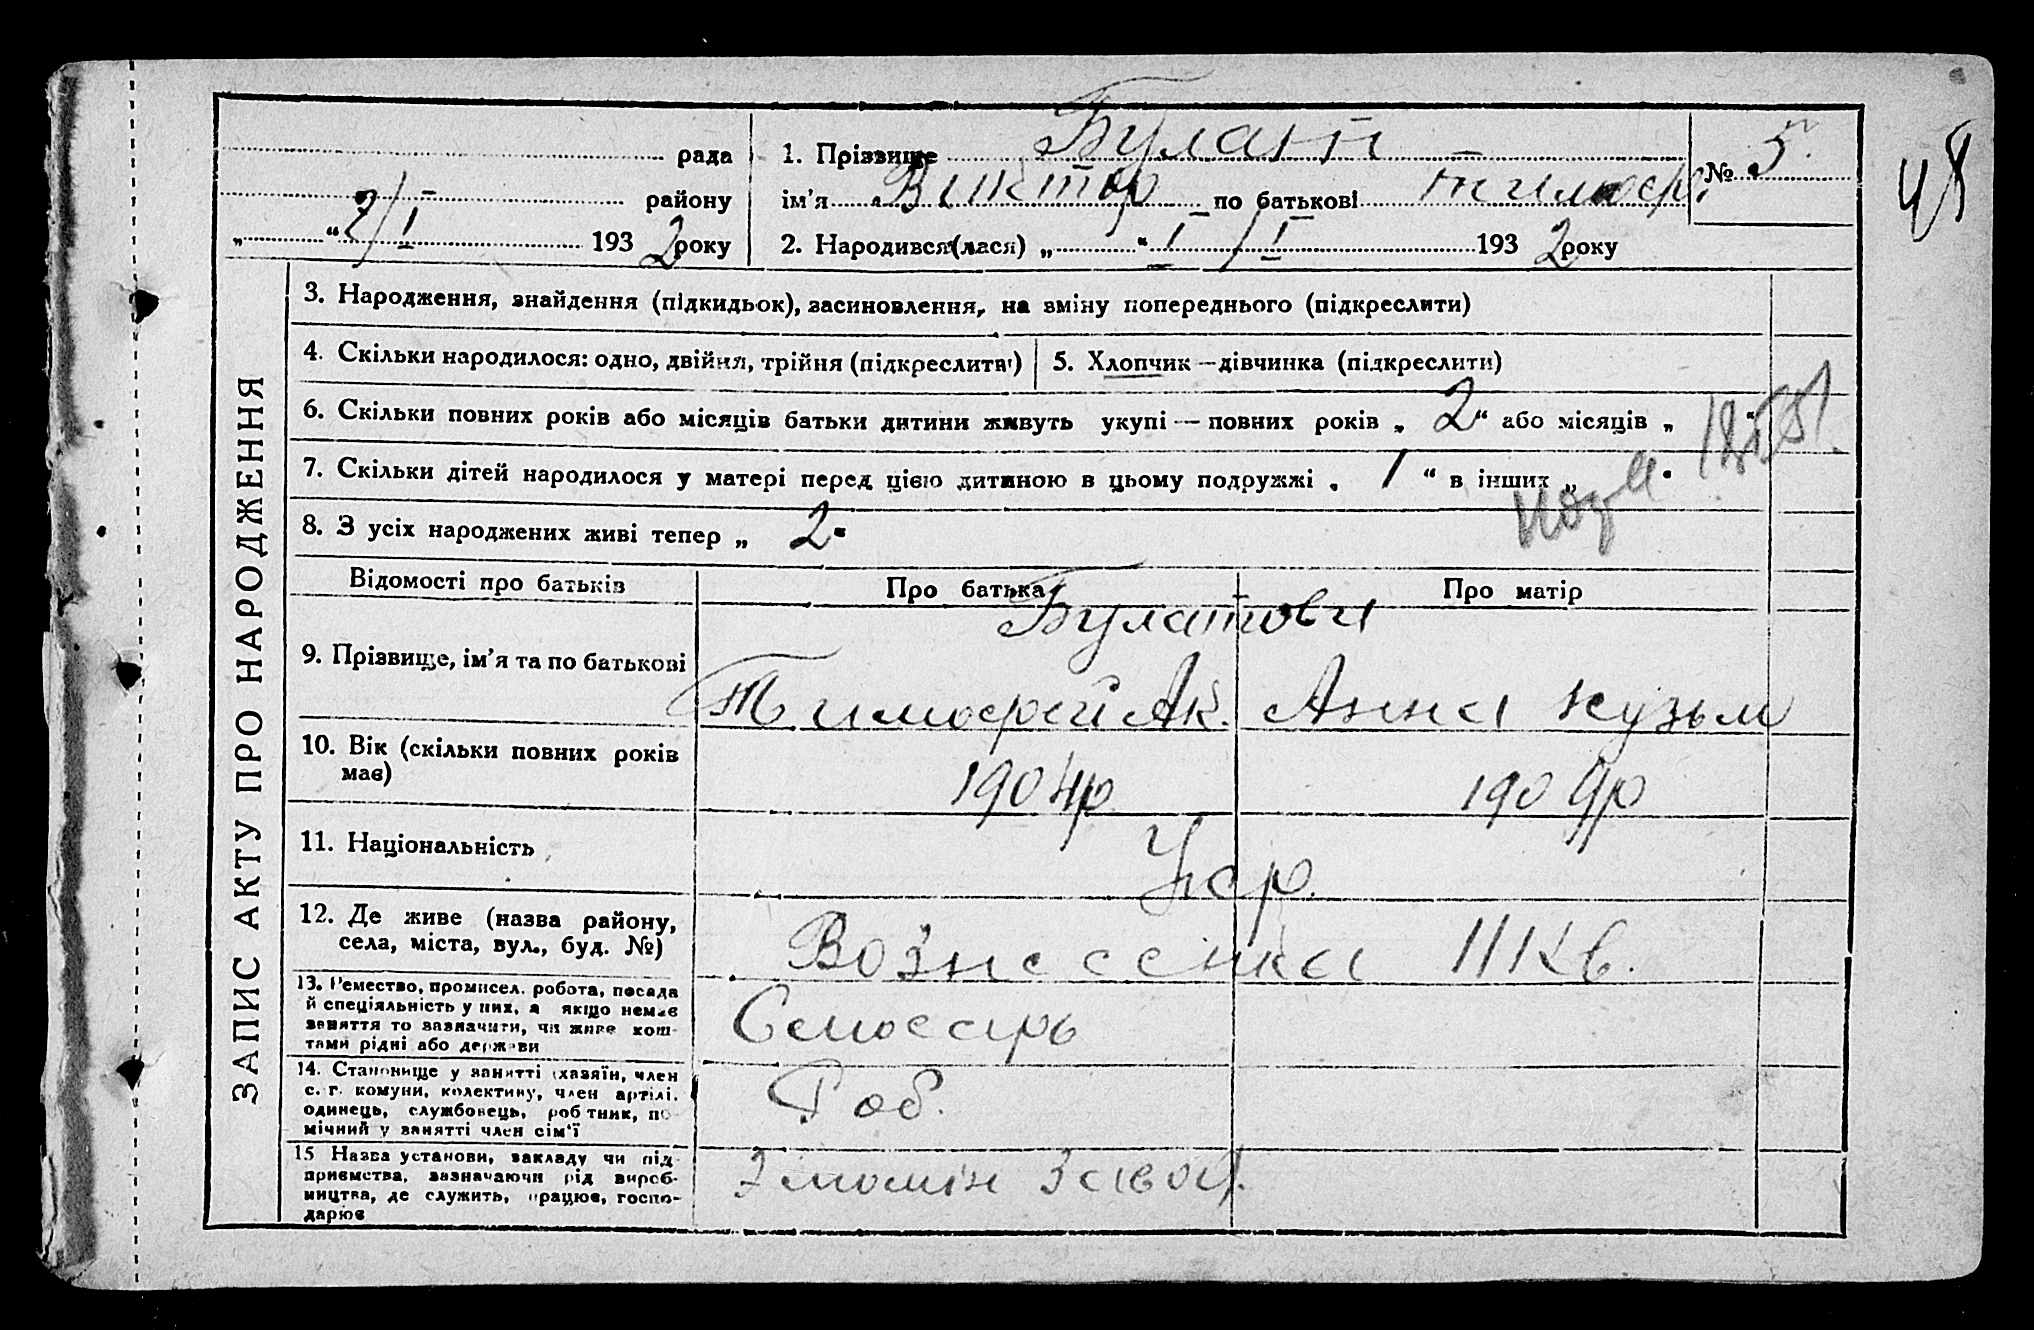 рада
району
„ “ 2/I 1932 року
1. Прізвище Булат
ім’я Виктор по батькові тимоф.
2. Народився(лася) „ “ I/I 1932 року
№ 5.
48
ЗАПИС АКТУ ПРО НАРОДЖЕННЯ
3. Народження, знайдення (підкидьок), засиновлення, на зміну попереднього (підкреслити)
4. Скільки народилося: одно, двійня, трійня (підкреслити)
5. Хлопчик—дівчинка (підкреслити)
6. Скільки повних років або місяців батьки дитини живуть укупі — повних років „ 2 “ або місяців „ “
7. Скільки дітей народилося у матері перед цією дитиною в цьому подружжі „ 1 “ в інших „ “
8. З усіх народжених живі тепер „ 2 “
Відомості про батьків Про батька Про матір
Булатови
9. Прізвище, ім’я та по батькові Тимофей Ак. Анна Кузьм
10. Вік (скільки повних років
має) 1904р 1909р
11. Національність Укр.
12. Де живе (назва району,
села, міста, вул., буд. №) Вознесенка 11 Кв.
13. Ремество, промисел, робота, посада
й спеціяльність у них, а якщо немає
заняття то зазначити, чи живе кош-
тами рідні або держави
Слюсарь
14. Становище у занятті (хазяїн, член
с.-г. комуни, колективу, член артілі,
одинець, службовець, робітник, по-
мічний у занятті член сім’ї
Роб.
15 Назва установи, закладу чи під-
приємства, зазначаючи рід вироб-
ництва, де служить, працює, госпо-
дарює
Завод.